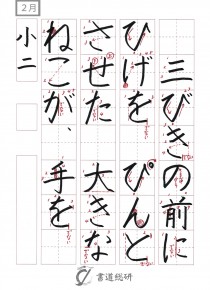 2月
三びきの前に
ひげをぴんと
させた大きな
ねこが、手を
小二
書道総研